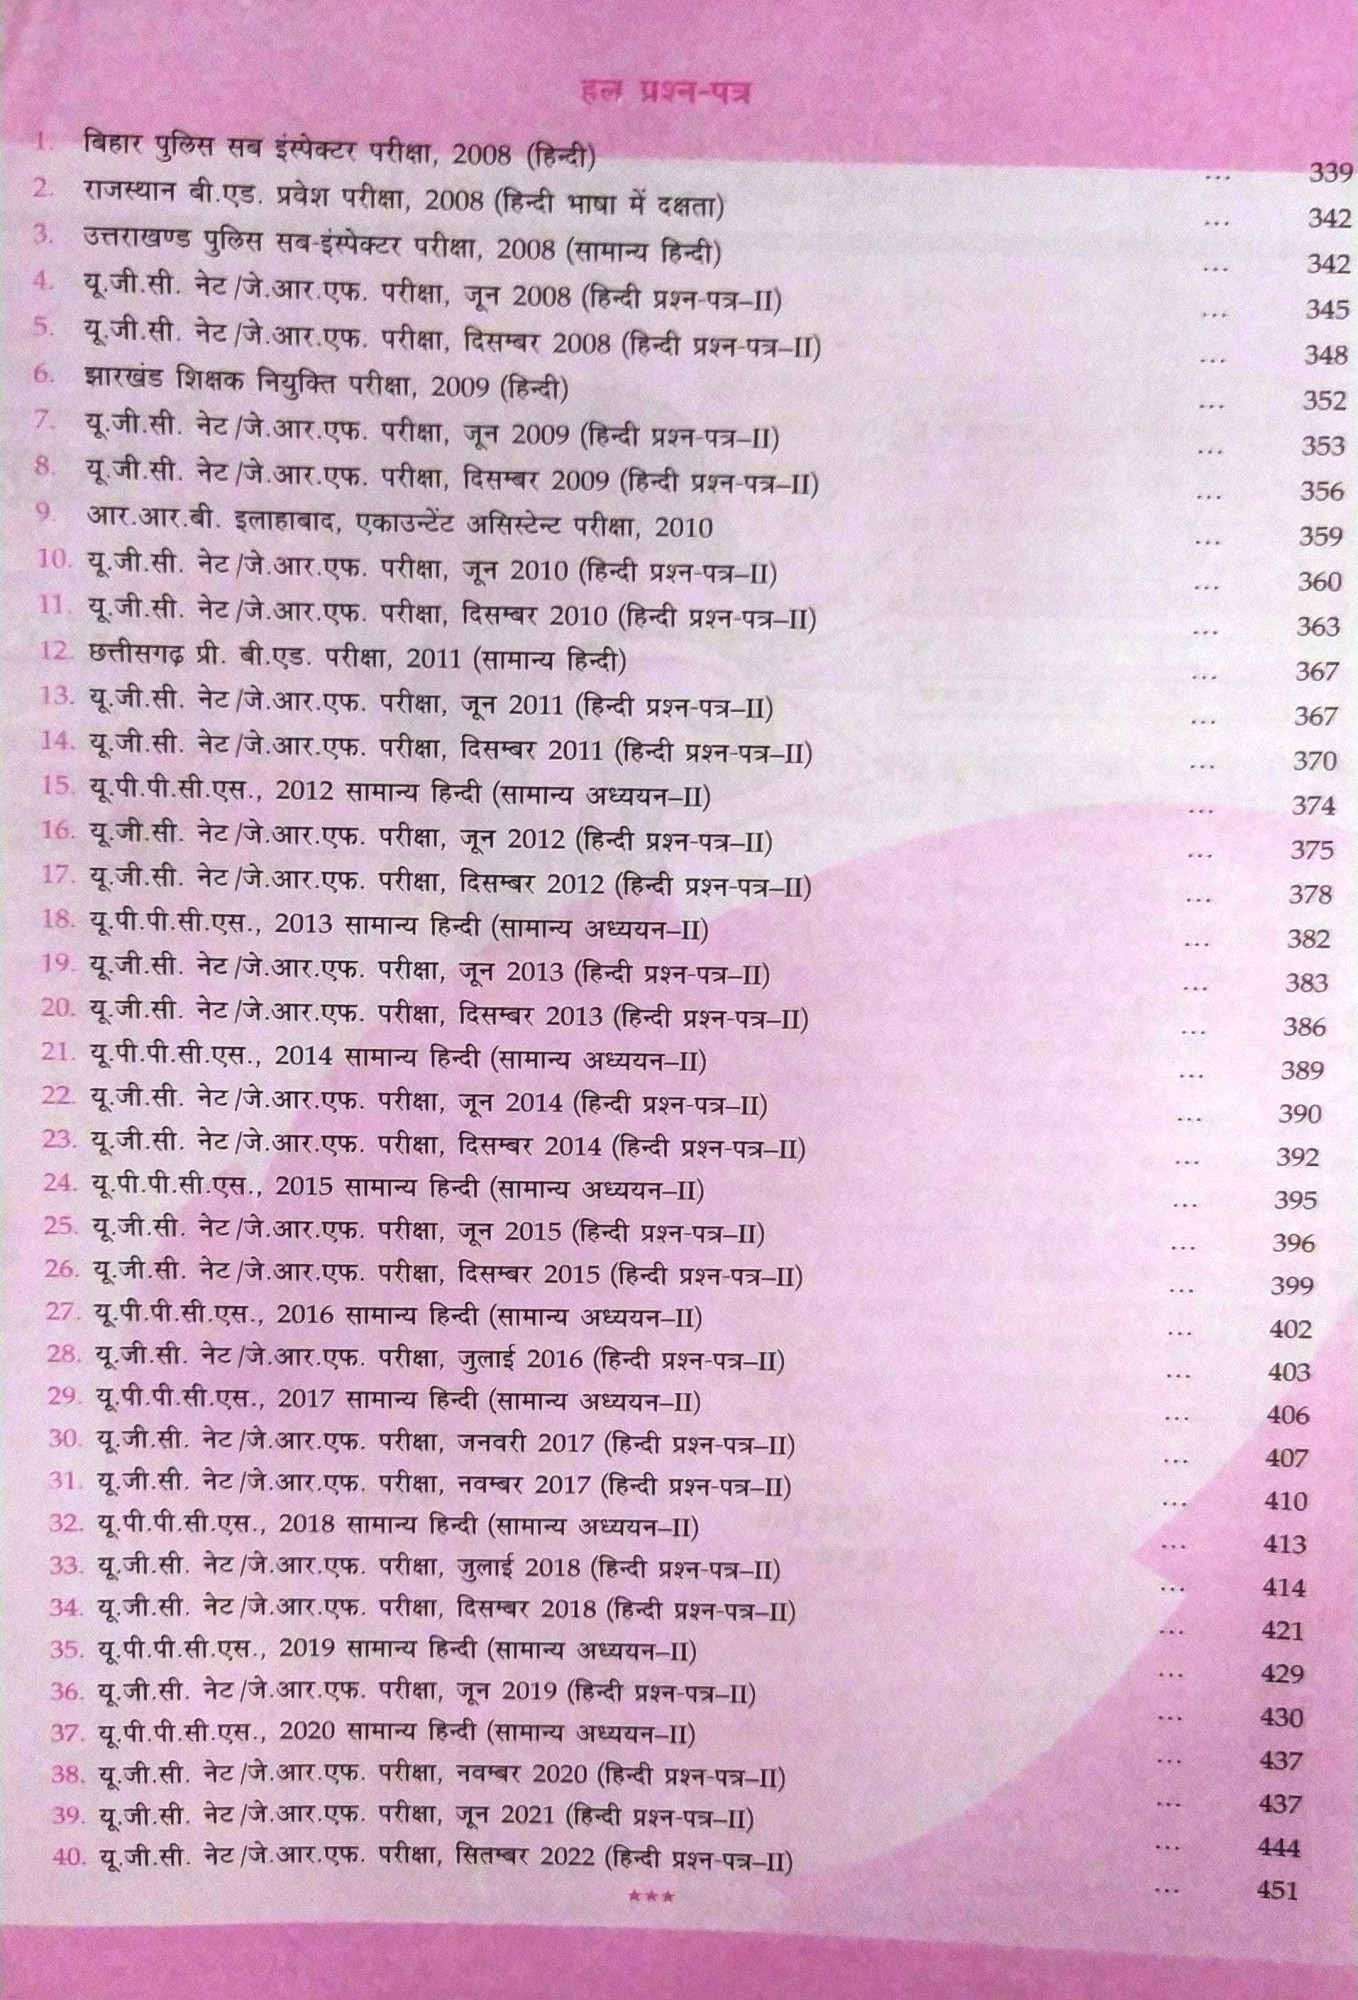 हल प्रश्न-पत्र
1. बिहार पुलिस सब इंस्पेक्टर परीक्षा, 2008 (हिन्दी) ... 339
2. राजस्थान बी.एड. प्रवेश परीक्षा, 2008 (हिन्दी भाषा में दक्षता) ... 342
3. उत्तराखण्ड पुलिस सब-इंस्पेक्टर परीक्षा, 2008 (सामान्य हिन्दी) ... 342
4. यू.जी.सी. नेट/जे.आर.एफ. परीक्षा, जून 2008 (हिन्दी प्रश्न-पत्र–II) ... 345
5. यू.जी.सी. नेट/जे.आर.एफ. परीक्षा, दिसम्बर 2008 (हिन्दी प्रश्न-पत्र–II) ... 348
6. झारखंड शिक्षक नियुक्ति परीक्षा, 2009 (हिन्दी) ... 352
7. यू.जी.सी. नेट/जे.आर.एफ. परीक्षा, जून 2009 (हिन्दी प्रश्न-पत्र–II) ... 353
8. यू.जी.सी. नेट/जे.आर.एफ. परीक्षा, दिसम्बर 2009 (हिन्दी प्रश्न-पत्र–II) ... 356
9. आर.आर.बी. इलाहाबाद, एकाउन्टेंट असिस्टेन्ट परीक्षा, 2010 ... 359
10. यू.जी.सी. नेट/जे.आर.एफ. परीक्षा, जून 2010 (हिन्दी प्रश्न-पत्र–II) ... 360
11. यू.जी.सी. नेट/जे.आर.एफ. परीक्षा, दिसम्बर 2010 (हिन्दी प्रश्न-पत्र–II) ... 363
12. छत्तीसगढ़ प्री. बी.एड. परीक्षा, 2011 (सामान्य हिन्दी) ... 367
13. यू.जी.सी. नेट/जे.आर.एफ. परीक्षा, जून 2011 (हिन्दी प्रश्न-पत्र–II) ... 367
14. यू.जी.सी. नेट/जे.आर.एफ. परीक्षा, दिसम्बर 2011 (हिन्दी प्रश्न-पत्र–II) ... 370
15. यू.पी.पी.सी.एस., 2012 सामान्य हिन्दी (सामान्य अध्ययन–II) ... 374
16. यू.जी.सी. नेट/जे.आर.एफ. परीक्षा, जून 2012 (हिन्दी प्रश्न-पत्र–II) ... 375
17. यू.जी.सी. नेट/जे.आर.एफ. परीक्षा, दिसम्बर 2012 (हिन्दी प्रश्न-पत्र–II) ... 378
18. यू.पी.पी.सी.एस., 2013 सामान्य हिन्दी (सामान्य अध्ययन–II) ... 382
19. यू.जी.सी. नेट/जे.आर.एफ. परीक्षा, जून 2013 (हिन्दी प्रश्न-पत्र–II) ... 383
20. यू.जी.सी. नेट/जे.आर.एफ. परीक्षा, दिसम्बर 2013 (हिन्दी प्रश्न-पत्र–II) ... 386
21. यू.पी.पी.सी.एस., 2014 सामान्य हिन्दी (सामान्य अध्ययन–II) ... 389
22. यू.जी.सी. नेट/जे.आर.एफ. परीक्षा, जून 2014 (हिन्दी प्रश्न-पत्र–II) ... 390
23. यू.जी.सी. नेट/जे.आर.एफ. परीक्षा, दिसम्बर 2014 (हिन्दी प्रश्न-पत्र–II) ... 392
24. यू.पी.पी.सी.एस., 2015 सामान्य हिन्दी (सामान्य अध्ययन–II) ... 395
25. यू.जी.सी. नेट/जे.आर.एफ. परीक्षा, जून 2015 (हिन्दी प्रश्न-पत्र–II) ... 396
26. यू.जी.सी. नेट/जे.आर.एफ. परीक्षा, दिसम्बर 2015 (हिन्दी प्रश्न-पत्र–II) ... 399
27. यू.पी.पी.सी.एस., 2016 सामान्य हिन्दी (सामान्य अध्ययन–II) ... 402
28. यू.जी.सी. नेट/जे.आर.एफ. परीक्षा, जुलाई 2016 (हिन्दी प्रश्न-पत्र–II) ... 403
29. यू.पी.पी.सी.एस., 2017 सामान्य हिन्दी (सामान्य अध्ययन–II) ... 406
30. यू.जी.सी. नेट/जे.आर.एफ. परीक्षा, जनवरी 2017 (हिन्दी प्रश्न-पत्र–II) ... 407
31. यू.जी.सी. नेट/जे.आर.एफ. परीक्षा, नवम्बर 2017 (हिन्दी प्रश्न-पत्र–II) ... 410
32. यू.पी.पी.सी.एस., 2018 सामान्य हिन्दी (सामान्य अध्ययन–II) ... 413
33. यू.जी.सी. नेट/जे.आर.एफ. परीक्षा, जुलाई 2018 (हिन्दी प्रश्न-पत्र–II) ... 414
34. यू.जी.सी. नेट/जे.आर.एफ. परीक्षा, दिसम्बर 2018 (हिन्दी प्रश्न-पत्र–II) ... 421
35. यू.पी.पी.सी.एस., 2019 सामान्य हिन्दी (सामान्य अध्ययन–II) ... 429
36. यू.जी.सी. नेट/जे.आर.एफ. परीक्षा, जून 2019 (हिन्दी प्रश्न-पत्र–II) ... 430
37. यू.पी.पी.सी.एस., 2020 सामान्य हिन्दी (सामान्य अध्ययन–II) ... 437
38. यू.जी.सी. नेट/जे.आर.एफ. परीक्षा, नवम्बर 2020 (हिन्दी प्रश्न-पत्र–II) ... 437
39. यू.जी.सी. नेट/जे.आर.एफ. परीक्षा, जून 2021 (हिन्दी प्रश्न-पत्र–II) ... 444
40. यू.जी.सी. नेट/जे.आर.एफ. परीक्षा, सितम्बर 2022 (हिन्दी प्रश्न-पत्र–II) ... 451
★★★